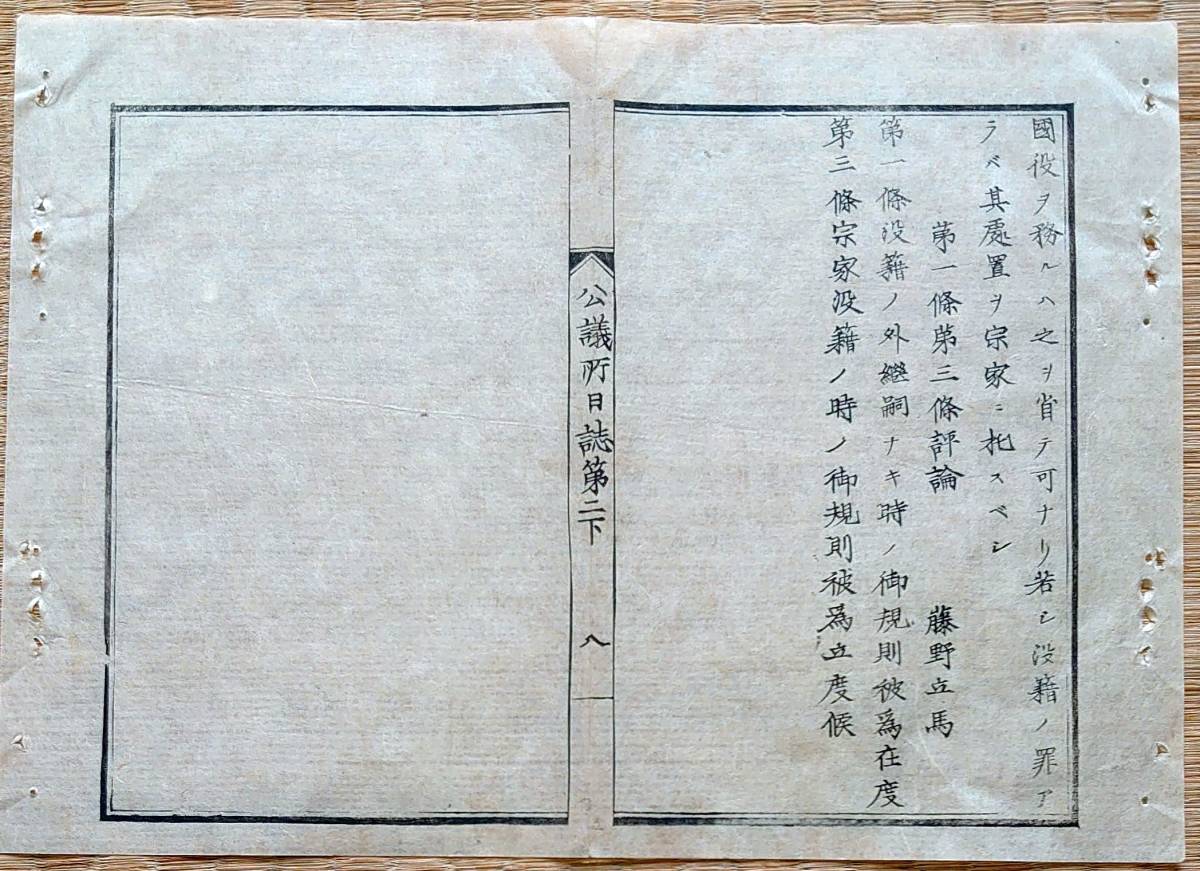 國役ヲ務ルハ之ヲ省テ可ナリ若シ没籍ノ罪ア
ラバ其處置ヲ宗家ニ托スベシ
第一條第三條評論 藤野立馬
第一條没籍ノ外繼嗣ナキ時ノ御規則被爲在度
第三條宗家没籍ノ時ノ御規則被爲立度候
公議所日誌第二下 八